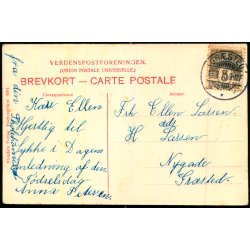 VERDENSPOSTFORENINGEN.
(UNION POSTALE UNIVERSELLE.)
BREVKORT — CARTE POSTALE
Correspondance
Adresse
Kære Ellen
Hjertlig til
Lykke i Dagens
Anledning af den
Fødselsdag
Anna Petersen
fra din
Frk Ellen Larsen
H Larsen
Nygade
Græsted.